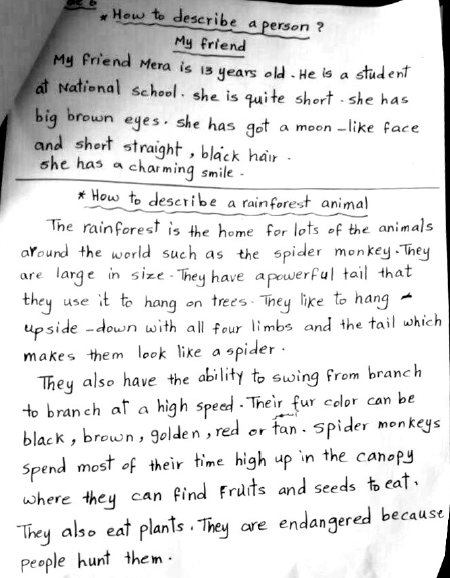 * How to describe a person ?
My friend
My friend Mera is 13 years old. He is a student
at National school. she is quite short. she has
big brown eyes. she has got a moon-like face
and short straight, black hair.
she has a charming smile.
* How to describe a rainforest animal
The rainforest is the home for lots of the animals
around the world such as the spider monkey. They
are large in size. They have a powerful tail that
they use it to hang on trees. They like to hang
upside-down with all four limbs and the tail which
makes them look like a spider.
They also have the ability to swing from branch
to branch at a high speed. Their fur color can be
black, brown, golden, red or tan. Spider monkeys
spend most of their time high up in the canopy
where they can find Fruits and seeds to eat.
They also eat plants. They are endangered because
people hunt them.